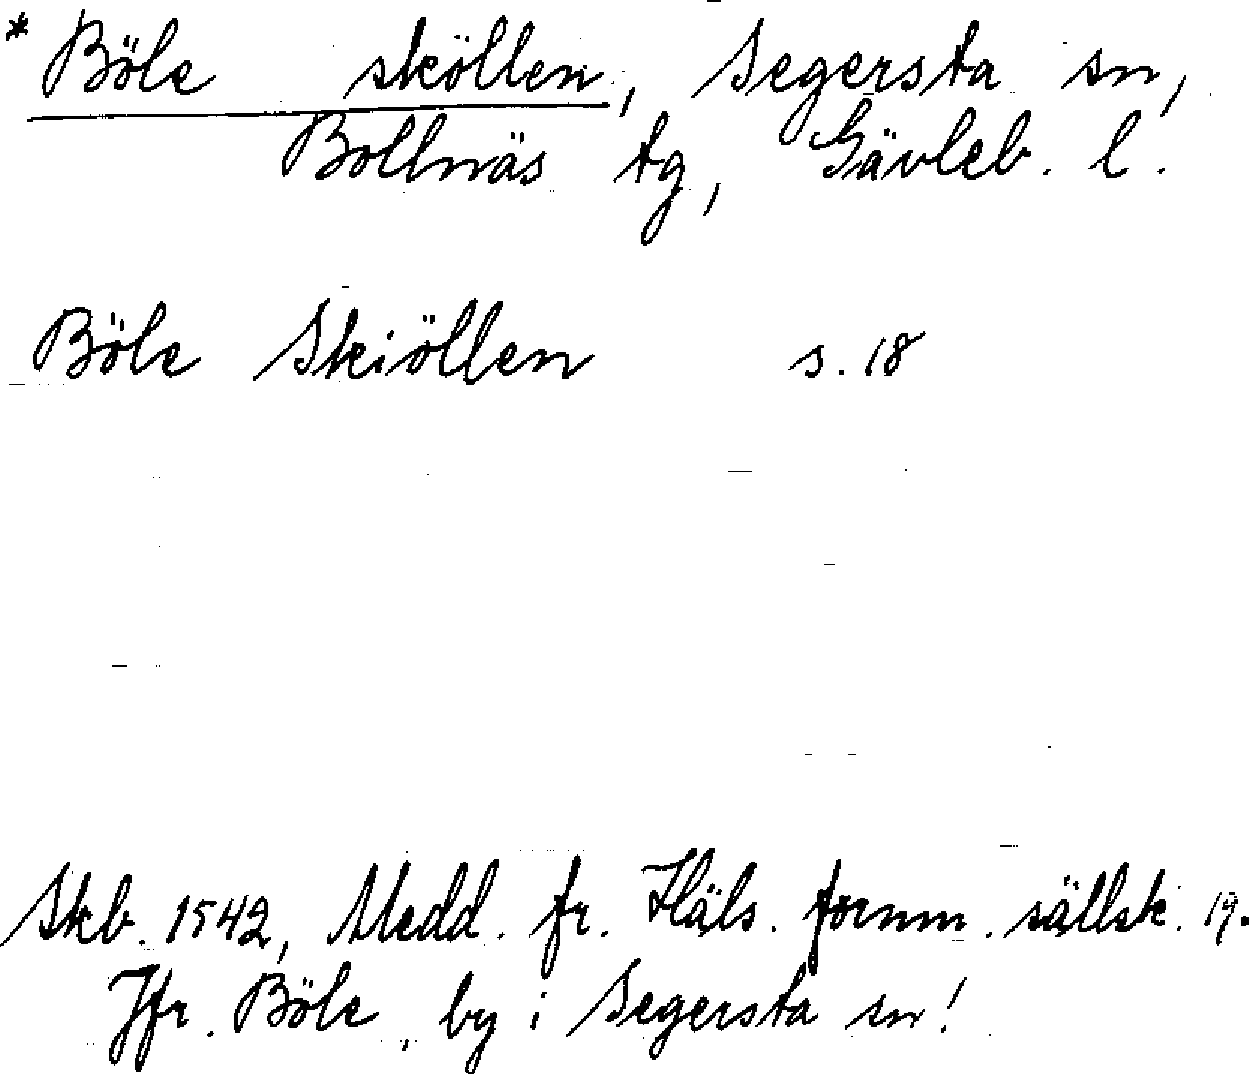 * Böle sköllen, Segersta sn,
Bollnäs tg, Gävleb. l.
Böle Skiöllen s. 18
Skb. 1542, Medd. fr. Häls. fornm. sällsk. 19.
Jfr. Böle, by i Segersta sn!